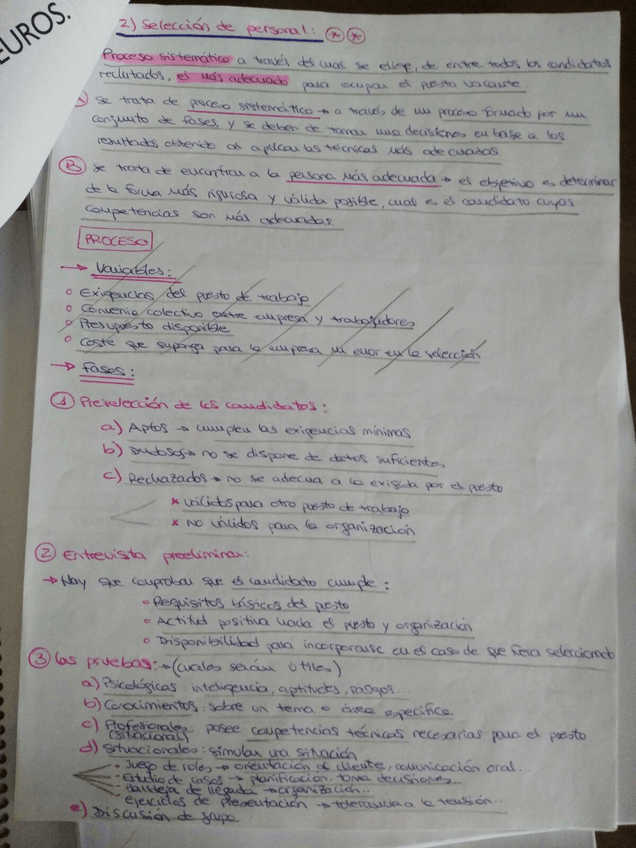 EUROS.
2) Selección de personal: ** 
Proceso sistemático a través del cual se elige, de entre todos los candidatos
reclutados, el más adecuado para ocupar el puesto vacante
A) Se trata de proceso sistemático → a través de un proceso formado por un
conjunto de fases, y se deben de tomar una decisiones en base a los
resultados obtenido al aplicar las técnicas más adecuadas
B) Se trata de encontrar a la persona más adecuada → el objetivo es determinar
de la forma más rigurosa y válida posible, cual es el candidato cuyas
competencias son más adecuadas.
PROCESO
→ Variables:
Exigencias del puesto de trabajo
Convenio colectivo entre empresa y trabajadores
Presupuesto disponible
Coste que suponga para la empresa un error en la selección
→ Fases:
1 Preselección de los candidatos:
a) Aptos → cumplen las exigencias mínimas
b) Dudosos → no se dispone de datos suficientes
c) Rechazados → no se adecua a lo exigido por el puesto
x válidos para otro puesto de trabajo
x no válidos para la organización
2 Entrevista preeliminar:
→ Hay que comprobar que el candidato cumple:
Requisitos básicos del puesto
Actitud positiva hacia el puesto y organización
Disponibilidad para incorporarse en el caso de que fuera seleccionado
3 Las pruebas: → (cuales serán útiles)
a) Psicológicas: inteligencia, aptitudes, rasgos...
b) Conocimientos: sobre un tema o área específica
c) Profesionales: posee competencias técnicas necesarias para el puesto
(situacional)
d) Situacionales: simular una situación
- Juego de roles → orientación al cliente, comunicación oral...
- Estudio de casos → planificación, toma decisiones
- Bandeja de llegada → organización...
- ejercicios de presentación → tolerancia a la tensión...
e) Discusión de grupo